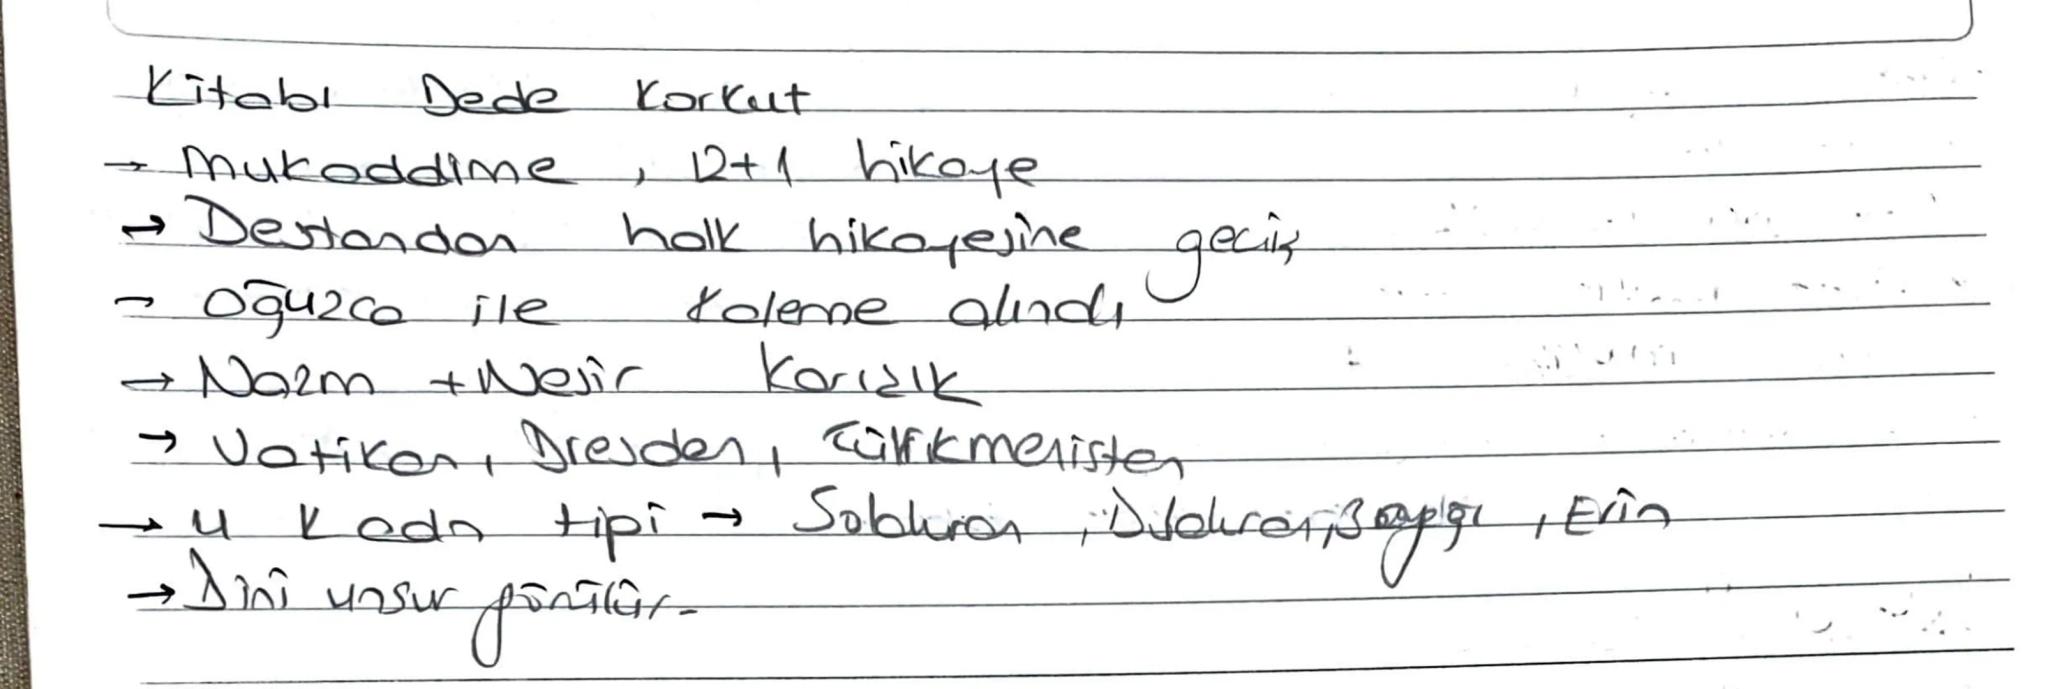 Kitabı Dede Korkut
→ Mukaddime, 12+1 hikaye
→ Destandan halk hikayesine geçiş
→ Oğuzca ile kaleme alındı
→ Nazm + Nesir Karışık
→ Vatikan, Dresden, Türkmenistan
→ 4 Kadn tipi → Solduran,
→ Dini unsur görülür.